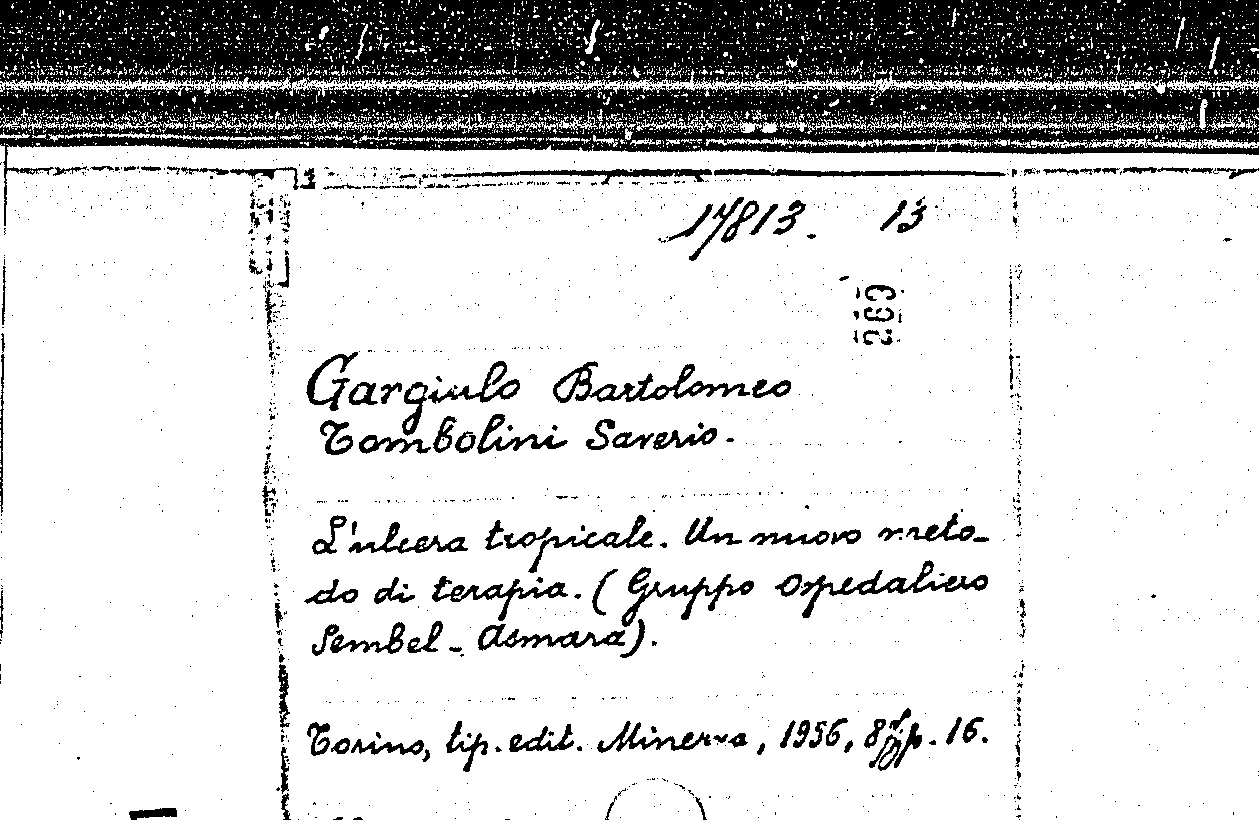 17813. 13
263
Gargiulo Bartolomeo
Tombolini Saverio.
L'ulcera tropicale. Un nuovo meto-
do di terapia. (Gruppo Ospedaliero
Sembel - Asmara).
Torino, tip. edit. Minerva, 1956, 8° pp. 16.